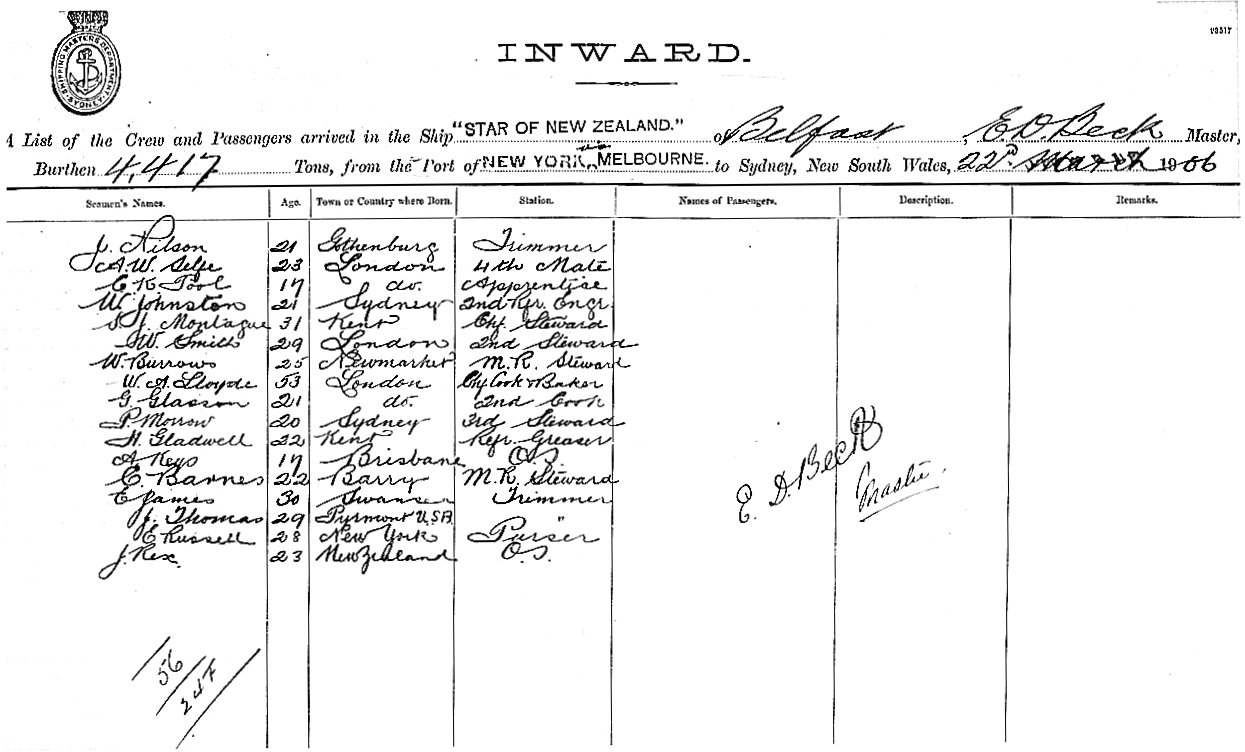 SHIPPING MASTERS DEPARTMENT SYDNEY
INWARD.
A List of the Crew and Passengers arrived in the Ship "STAR OF NEW ZEALAND." of Belfast, E. D. Beck Master,
Burthen 4,417 Tons, from the Port of NEW YORK, via MELBOURNE. to Sydney, New South Wales, 22nd March 1906
Seamen's Names. Age. Town or Country where Born. Station. Names of Passengers. Description. Remarks.
J. Nilson 21 Gothenburg Trimmer
A. W. Selfe 23 London 4th Mate
C K Pool 17 do. Apprentise
W. Johnston 21 Sydney 2nd Rfr. Engr
S J. Montague 31 Kent Chf. Steward
W. Smith 29 London 2nd Steward
W. Burrows 25 Newmarket M. R. Steward
W. A. Lloyde 53 London Chf Cook & Baker
G. Glasson 21 do. 2nd Cook
P. Morrow 20 Sydney 3rd Steward
H. Gladwell 22 Kent Refr. Greaser
A Keys 17 Brisbane O.S.
E. Barnes 22 Barry M. R. Steward
E James 30 Swansea Trimmer
J. Thomas 29 Pyrmont U.S.A. "
E Russell 28 New York Purser
J. Rex. 23 New Zealand O.S.
E. D. Beck
Master.
56
247